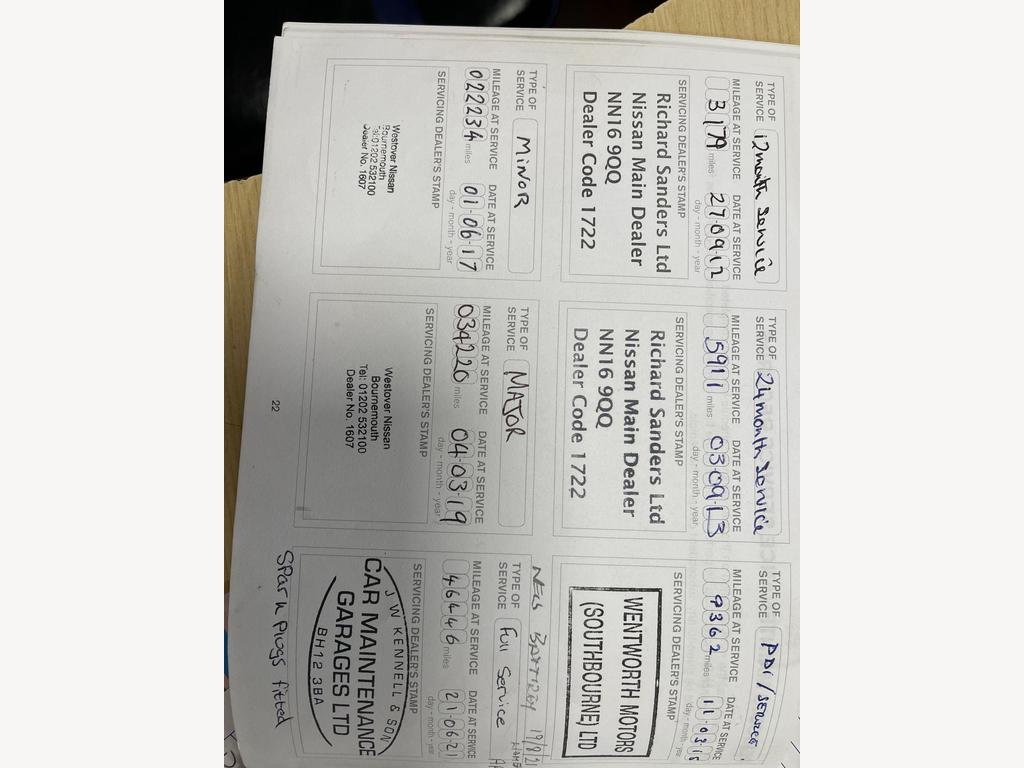 TYPE OF
SERVICE 12 month Service
MILEAGE AT SERVICE DATE AT SERVICE
3179 miles 27 09 12
day - month - year
SERVICING DEALER'S STAMP
Richard Sanders Ltd
Nissan Main Dealer
NN16 9QQ
Dealer Code 1722
TYPE OF
SERVICE 24 month Service
MILEAGE AT SERVICE DATE AT SERVICE
5911 miles 03 09 13
day - month - year
SERVICING DEALER'S STAMP
Richard Sanders Ltd
Nissan Main Dealer
NN16 9QQ
Dealer Code 1722
TYPE OF
SERVICE PDI / SERVICE
MILEAGE AT SERVICE DATE AT SERVICE
9362 miles 11 03 15
day - month - ye
SERVICING DEALER'S STAMP
WENTWORTH MOTORS
(SOUTHBOURNE) LTD
TYPE OF
SERVICE MINOR
MILEAGE AT SERVICE DATE AT SERVICE
022234 miles 01 06 17
day - month - year
SERVICING DEALER'S STAMP
Westover Nissan
Bournemouth
Tel: 01202 532100
Dealer No. 1607
TYPE OF
SERVICE MAJOR
MILEAGE AT SERVICE DATE AT SERVICE
034220 miles 04 03 19
day - month - year
SERVICING DEALER'S STAMP
Westover Nissan
Bournemouth
Tel: 01202 532100
Dealer No. 1607
NEW BATTERY 19/8/21
TYPE OF
SERVICE Full Service
MILEAGE AT SERVICE DATE AT SERVICE
46446 miles 21 06 21
day - month - year
SERVICING DEALER'S STAMP
J W KENNELL & SON
CAR MAINTENANCE
GARAGES LTD
BH12 3BA
Spark Plugs fitted
22